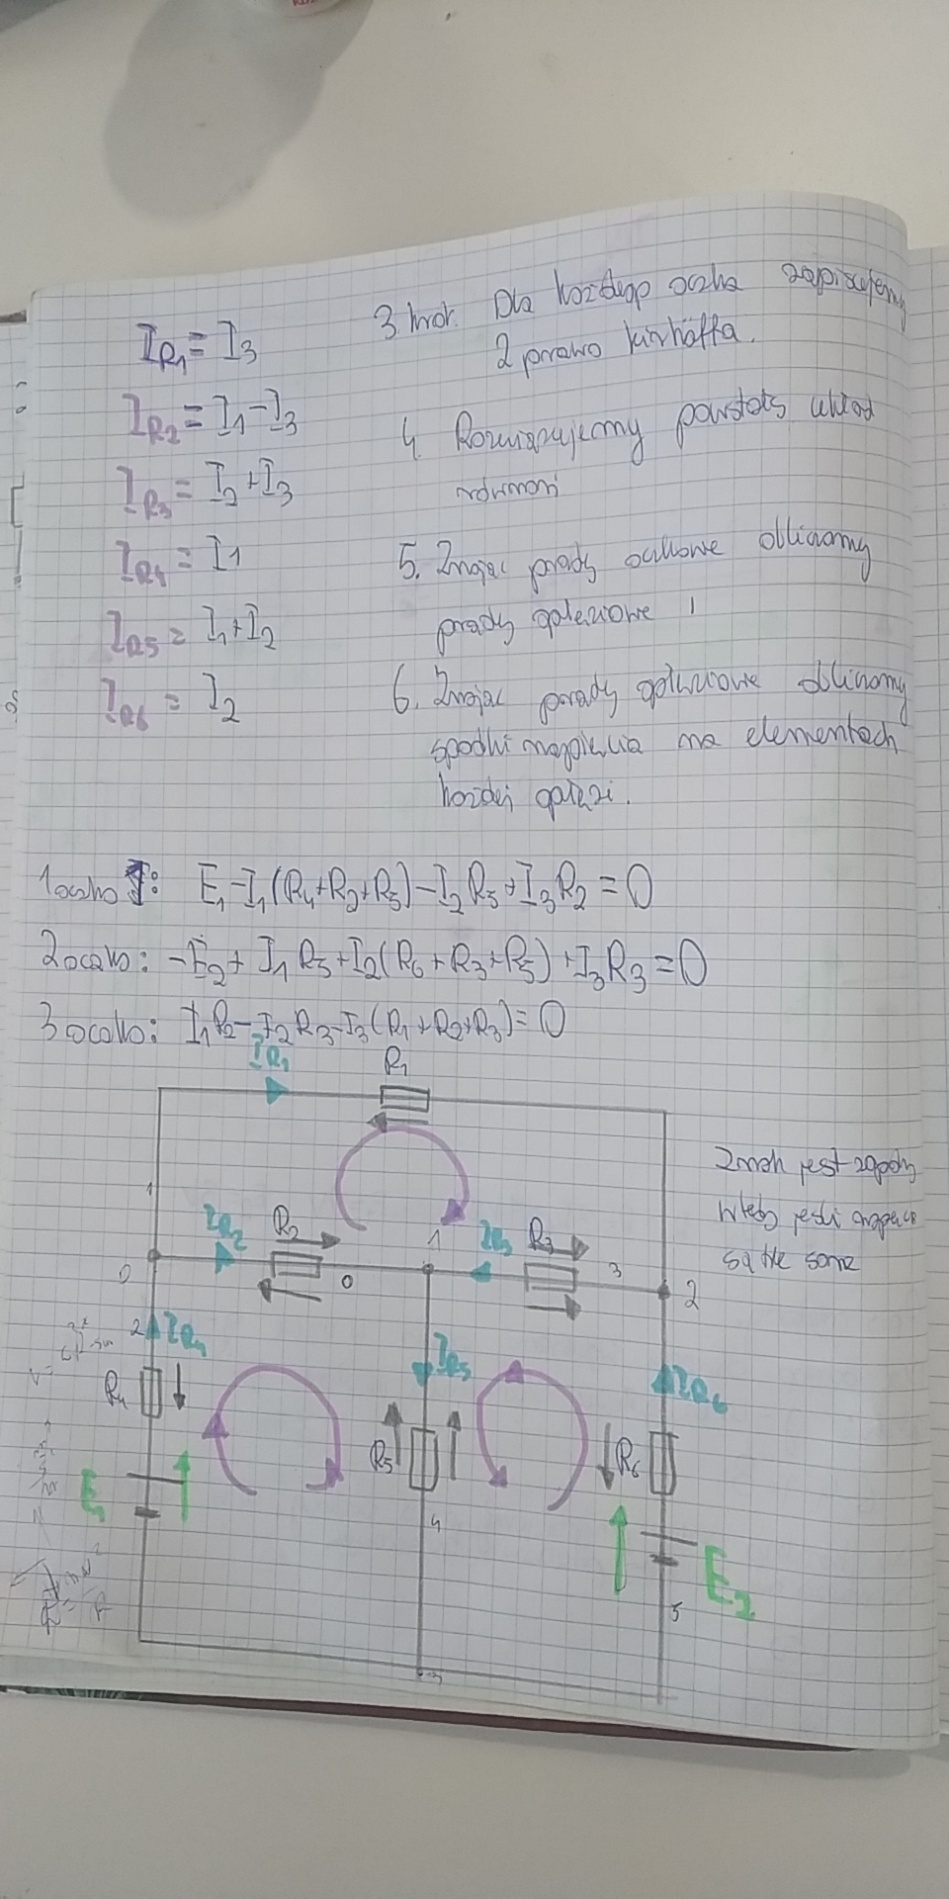 I_R1 = I_3
I_R2 = I_1 - I_3
I_R3 = I_2 + I_3
I_R4 = I1
I_R5 = I_1 + I_2
I_R6 = I_2
3 krok. Dla każdego oczka zapisujemy
2 prawo kirhoffa.
4. Rozwiązujemy powstały układ
równań
5. Znając prądy oczkowe obliczamy
prądy gałęziowe
6. Znając prądy gałęziowe obliczamy
spadki napięcia na elementach
każdej gałęzi.
1 oczko: E_1 - I_1(R_4+R_2+R_5) - I_2 R_5 + I_3 R_2 = 0
2 oczko: -E_2 + I_1 R_5 + I_2(R_6+R_3+R_5) + I_3 R_3 = 0
3 oczko: I_1 R_2 - I_2 R_3 - I_3(R_1+R_2+R_3) = 0
I_R1
R_1
Znak jest zgodny
wtedy jeśli
są takie same
I_R2
R_2
1
I_R3
R_3
0
0
3
2
2
I_R4
I_R5
I_R6
R_4
R_5
R_6
E_1
4
E_2
5